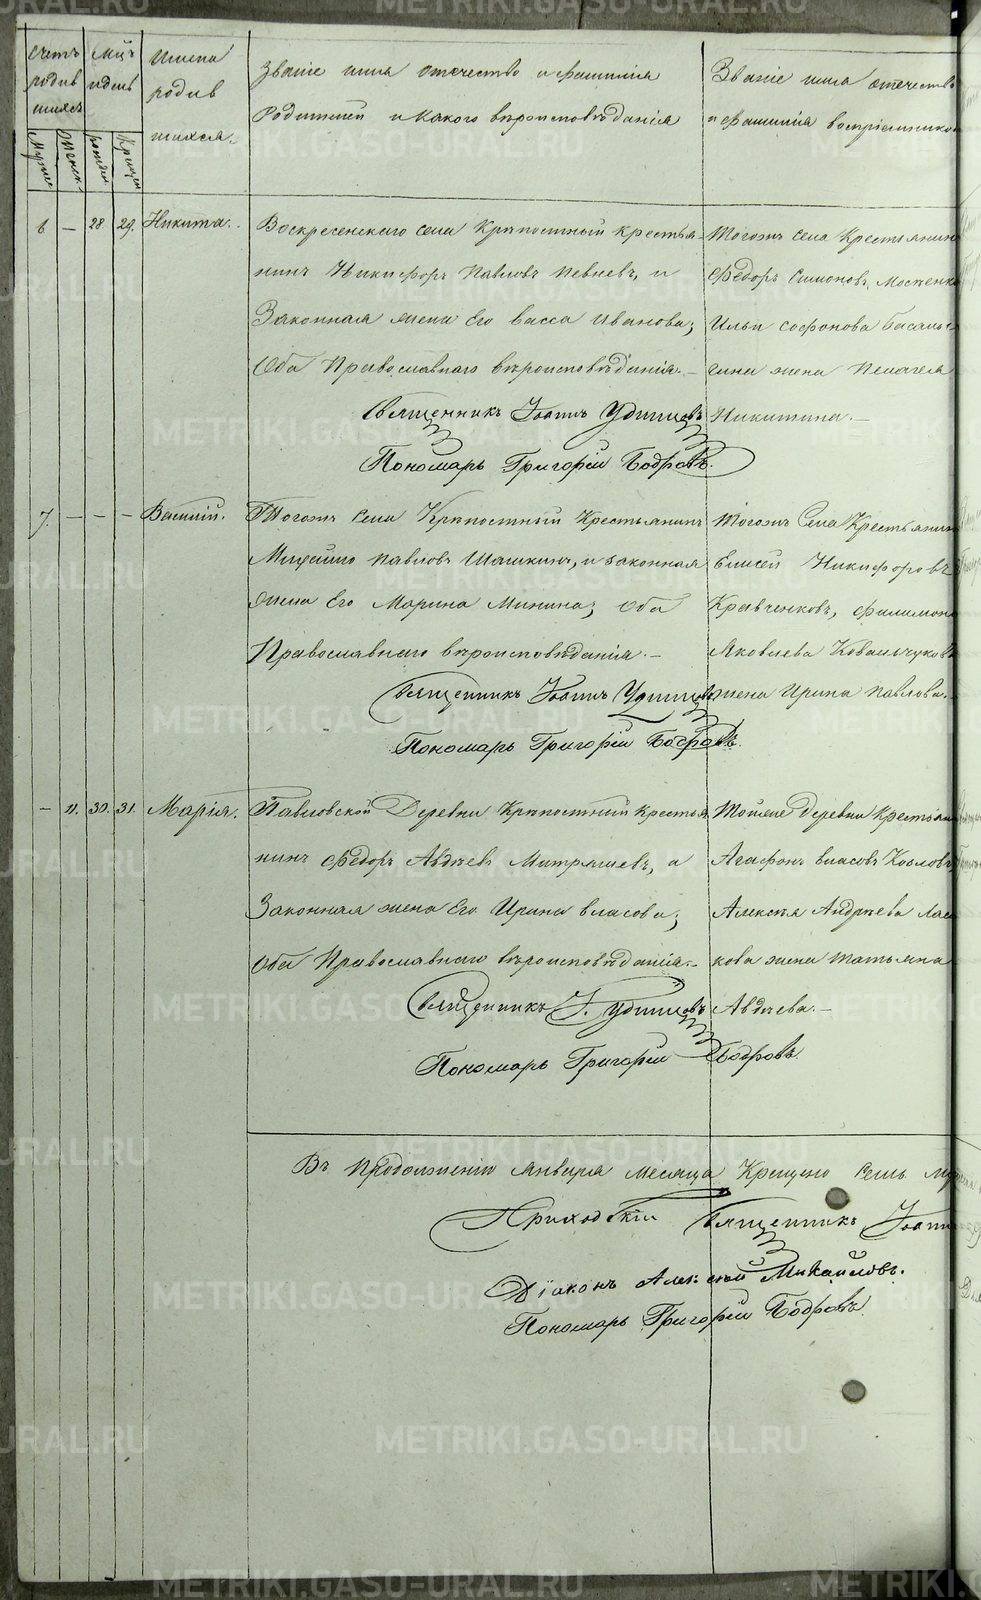 Счетъ родив шихся
Мужес.
Женск.
Мцъ и день
рожден.
Крещен
Имена родив шихся.
Званіе имя отечество и фамилія
Родителей и какого вѣроисповѣданія
Званіе имя отечество
и фамилія воспріемников
6 — 28 29. Никита.
Воскресенскаго села Крѣпостный Крестья-
нинъ Никифоръ Павловъ Певневъ, и
Законная жена Его Васса Иванова;
Оба Православнаго вѣроисповѣданія.—
Священникъ Іоаннъ Удинцовъ
Пономарь Григорій Бодровъ.
Тогожъ села Крестьянинъ
Федоръ Симоновъ
Ильи Софонова
сина жена Пелагея
Никитина.—
7. — — — Василій.
Тогожъ Села Крѣпостный Крестьянинъ
Михайло Павловъ Шашкинъ, и законная
жена Его Марина Минина; Оба
Православнаго вѣроисповѣданія.—
Священникъ Іоаннъ Удинцовъ
Пономарь Григорій Бодровъ.
Тогожъ Села Крестьянинъ
Елисей Никифоровъ
Кравченковъ, Филимона
Яковлева Ковальчукова
жена Ирина Павлова.—
— 11. 30. 31. Марія.
Павловской Деревни Крѣпостный крестья
нинъ Федоръ Авдѣевъ Митряшевъ, и
Законная жена Его Ирина Власова;
Оба Православнаго вѣроисповѣданія.—
Священникъ І. Удинцовъ
Пономарь Григорій Бодровъ.
Тойже Деревни Крестьян
Агафонъ Власовъ Козловъ
Алексѣя Андрѣева Лас
кова жена Татьяна
Авдѣева.—
Въ продолженіи января месяца Крещено семь
Приходскій Священникъ Іоаннъ
Діаконъ Алексѣй Михайловъ.
Пономарь Григорій Бодровъ
METRIKI.GASO-URAL.RU